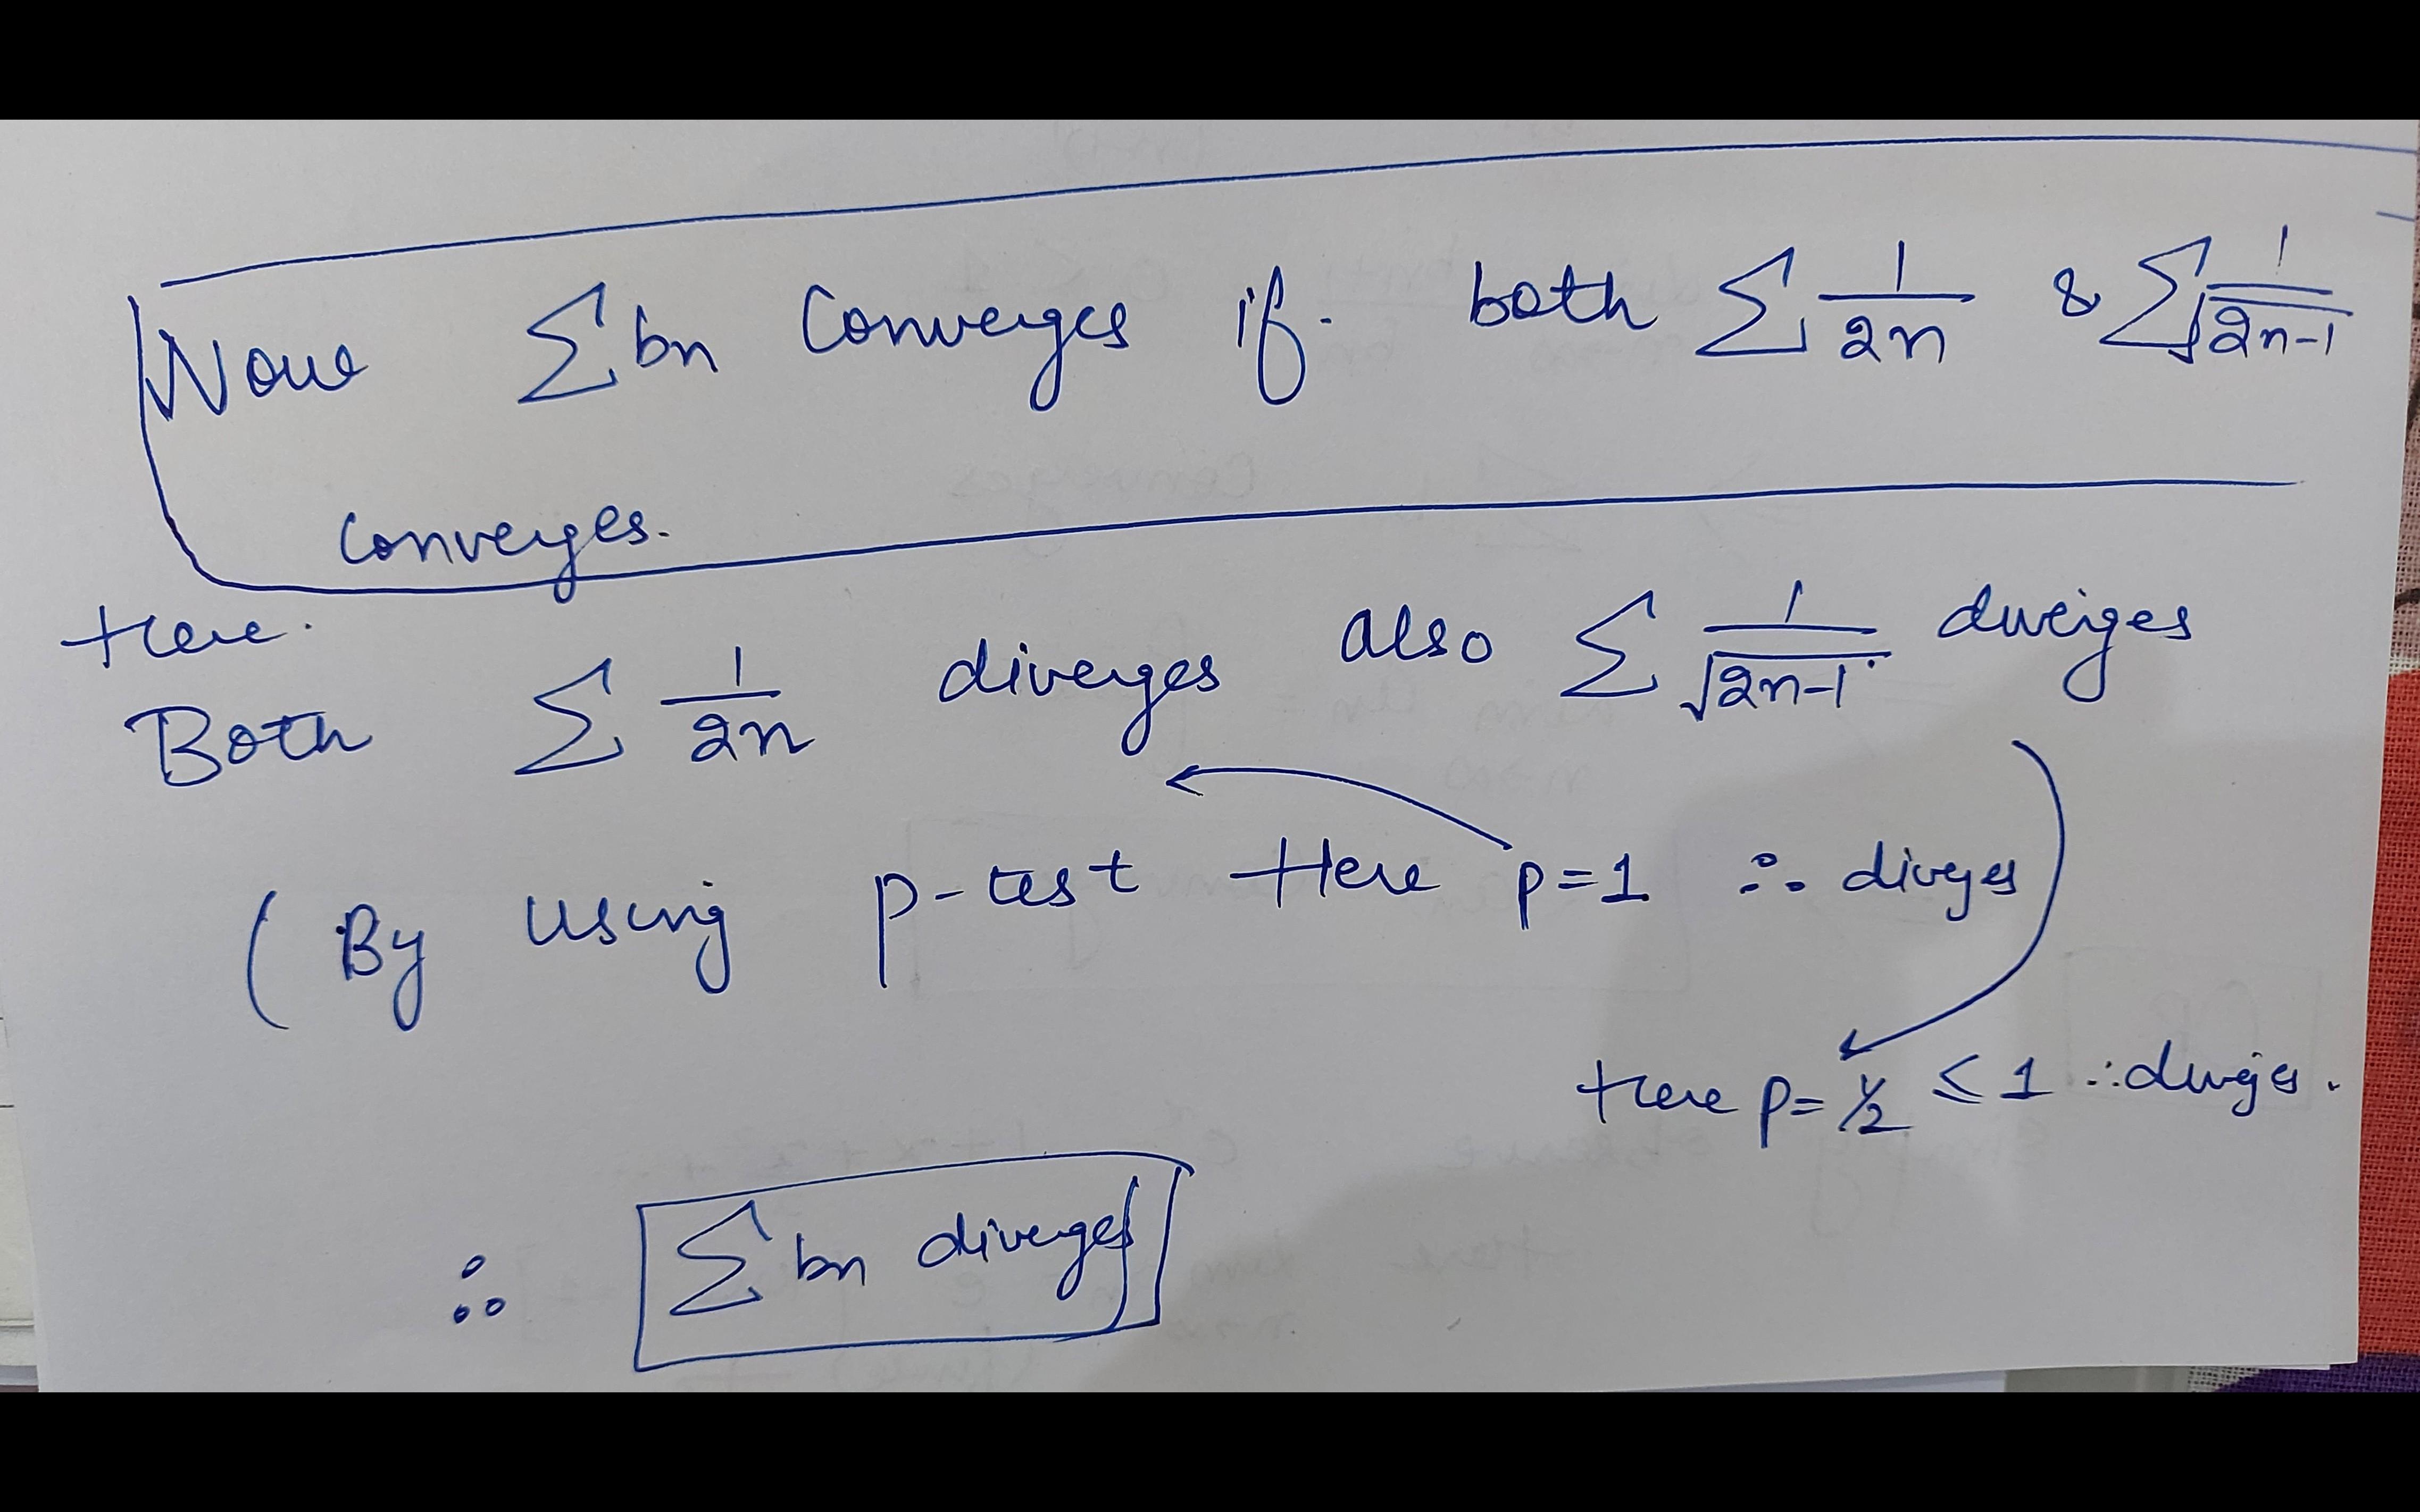 Now ∑bn Converges if. both ∑ 1/2n & ∑ 1/√(2n-1)
Converges.
Here.
Both ∑ 1/2n diverges also ∑ 1/√(2n-1) diverges
( By using p-test Here p=1 ∴ diverges
Here p=1/2 ≤ 1 ∴ diverges.
∴ ∑bn diverges